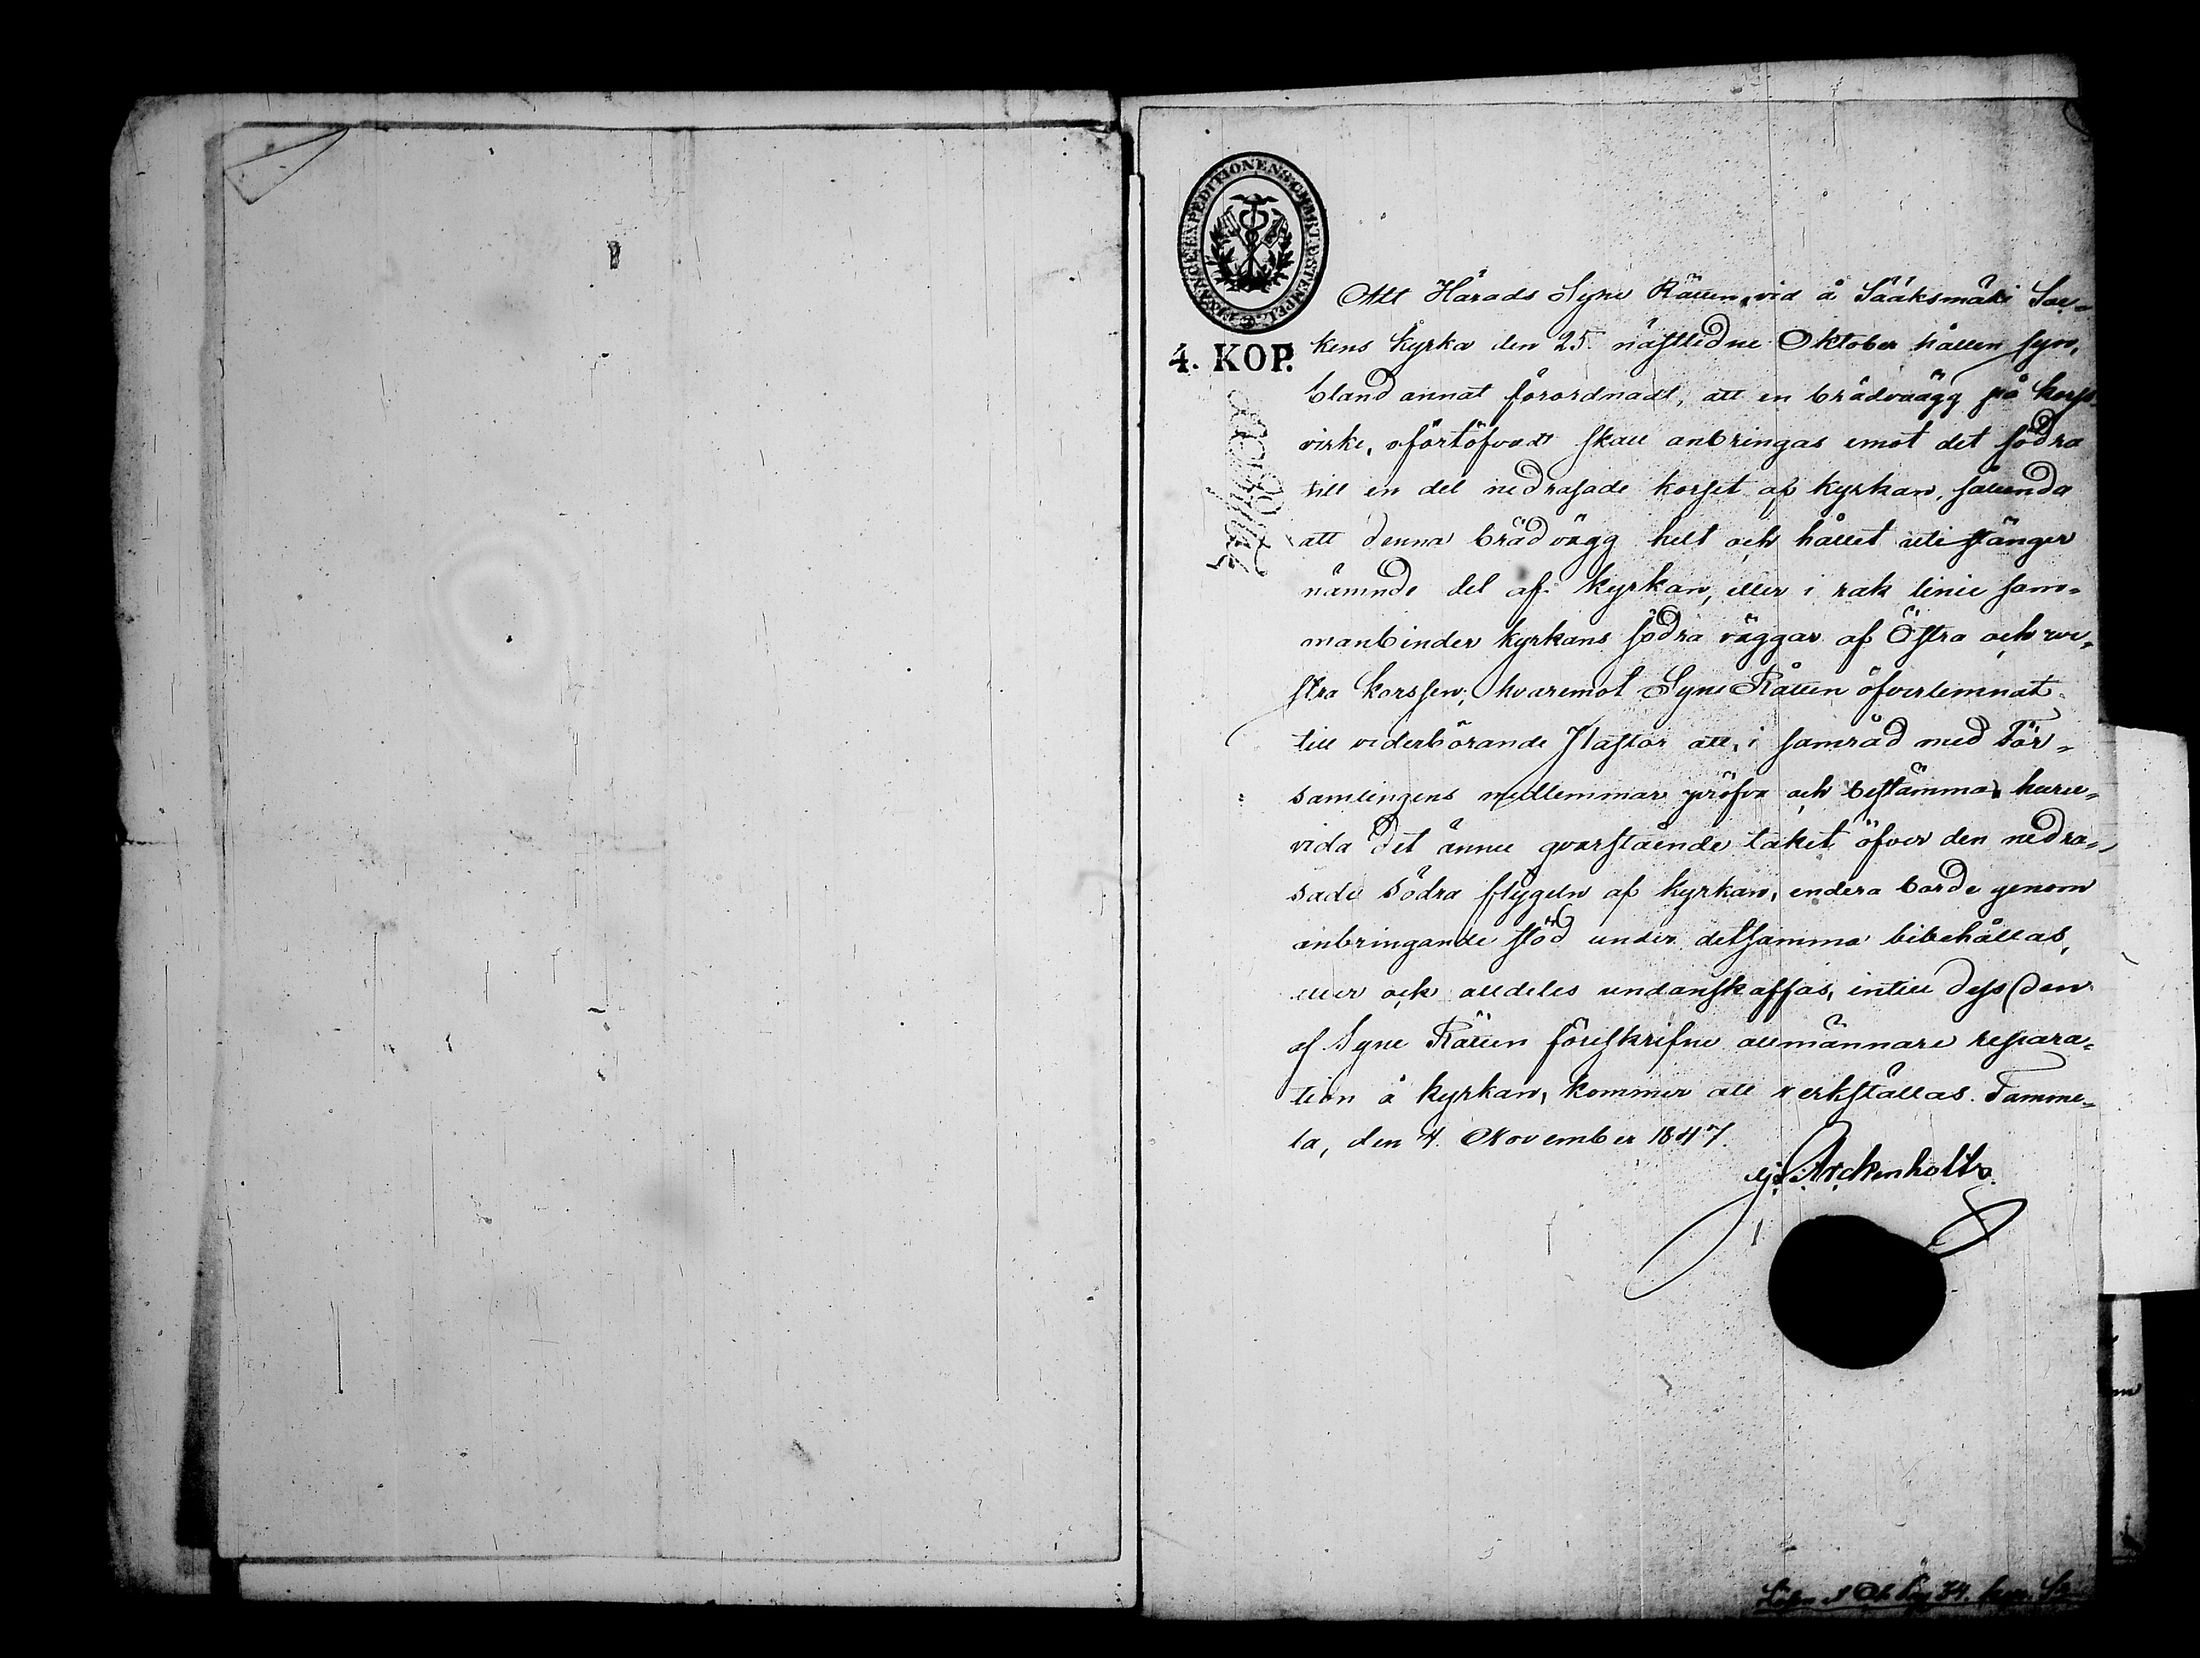 FINANCE EXPEDITIONENS CHARTÆ STEMPEL
4. KOP.
Att Härads Syne Rätten, vid å Sääksmäki Soc-
kens Kyrka den 25 nästledne Oktober hållen syn,
bland annat förordnadt, att en brädvägg på kors-
virke, oförtöfvadt skall anbringas emot det södra
till en del nedrasade korset af kyrkan, sålunda
att denna brädvägg helt och hållet utestänger
nämnde del af Kyrkan, eller i rak linie sam-
manbinder kyrkans södra väggar af Östra och we-
stra korssen; hvaremot Syne Rätten öfverlemnat
till vederbörande Pastor att, i samråd med För-
samlingens medlemmar pröfva och bestämma huru-
vida det ännu qvarstående taket öfver den nedra-
sade södra flygeln af kyrkan, endera borde genom
anbringande stöd under detsamma bibehållas,
eller ock alldeles undanskaffas, intill dess den
af Syne Rätten föreskrifne allmännare repara-
tion å kyrkan, kommer att verkställas. Tamme-
la, den 4 November 1847.
Archenholtz